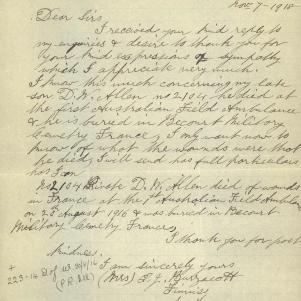 Nov 7 - 1918
Dear Sirs,
I received your kind reply to
my enquiries & desire to thank you for
your kind expressions of sympathy
which I appreciate very much.
I know this much concerning my late
son D. W. Allen no 2104. He died at
the first Australian Field Ambulance
& he is buried in Becourt Military
Cemetry France, I only want now to
know of what the wounds were that
he died, I will send his full particulars
has I am
No 2104 Private D. W. Allen died of wounds
in France at the 1st Australian Field Ambulance
on August 1916 & was buried in Becourt
Military Cemetry France,
I thank you for past
kindness.
I am sincerely yours
(Mrs)